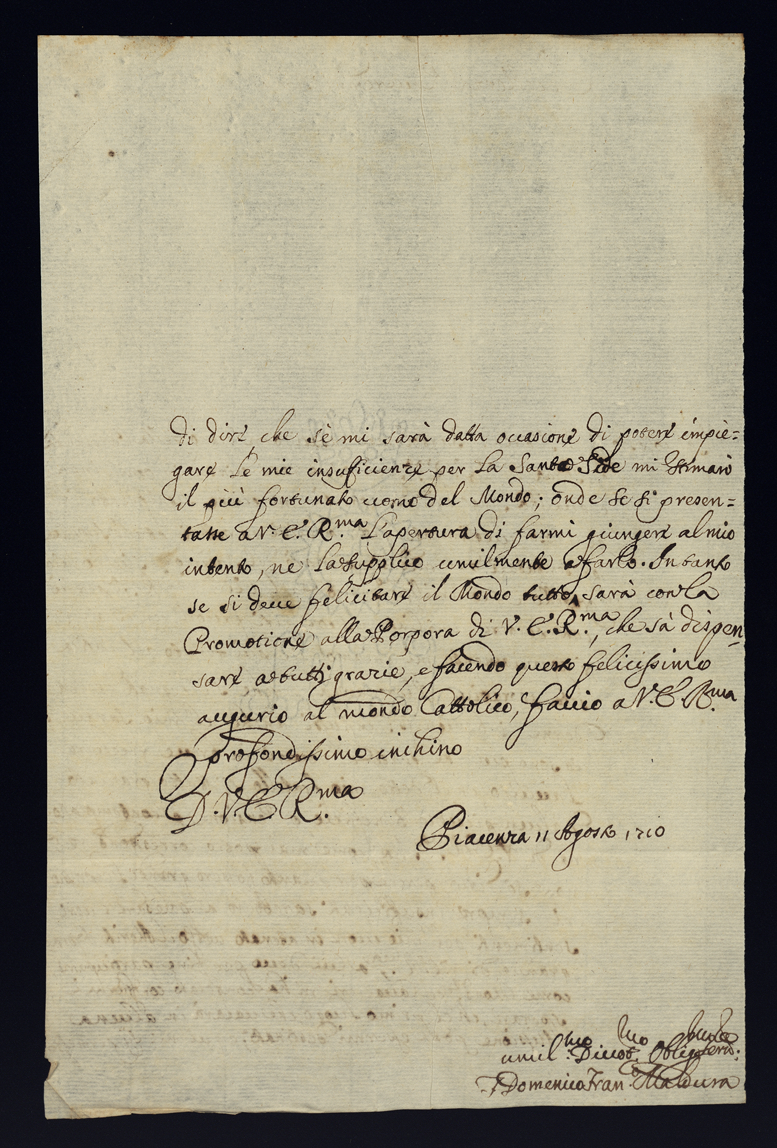 di dire che se mi sarà datta occasione di potere impie=
gare le mie insuficienze per la Santa Sede mi stimarò
il più fortunato uomo del Mondo; onde se si presen=
tasse a V. E. R.ma l'apertura di farmi giungere al mio
intento, ne la supplico umilmente a farlo. Intanto
se si deve felicitare il Mondo tutto, sarà con la
Promotione alla Porpora di V. E. R.ma, che sà dispen-
sare a tutti grazie, e facendo questo felicissimo
augurio al mondo Cattolico, faccio a V. E. R.ma
profondissimo inchino
D. V. E. R.ma
Piacenza 11 Agosto 1710
umil.mo Divot.mo Oblig.mo Serv.
Domenico Fran.co Maldura